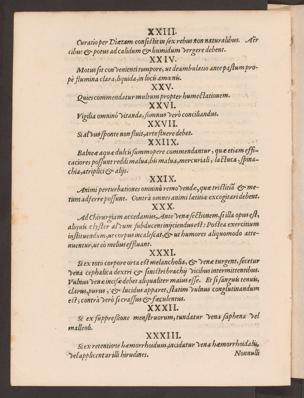 XXIII.
Curatio per Diætam consistit in sex rebus non naturalibus. Aer
cibus & potus ad calidum & humidum vergere debent.
XXIV.
Motus sit convenienti tempore, ut deambulatio ante pastum pro-
pè flumina clara, liquida, in locis amænis.
XXV.
Quies commendatur multum propter humectationem.
XXVI.
Vigilia omninò vitanda, somnus verò conciliandus.
XXVII.
Si alvus sponte non fluit, arte fluere debet.
XXIIX.
Balneæ aquæ dulcis summopere commendantur, quæ etiam effi-
caciores possunt reddi malva, bismalva, mercuriali, lactuca, spina-
chia, atriplici & aliis.
XXIX.
Animi perturbationes omninò removendæ, quæ tristitiã & me-
tum adferre possunt. Contrà omnes animi lætitiæ excogitari debent.
XXX.
Ad Chirurgiam accedamus, Ante venæ sectionem, si illa opus est,
aliquis clyster alvum subducens injiciendus est: Postea exercitium
instituendum, ut corpus incalescat, & ut humores aliquomodo atte-
nuentur, ut eò melius effluant.
XXXI.
Si ex toto corpore orta est melancholia, & venæ turgent, secetur
vena cephalica dextri & sinistri brachij vicibus intermittentibus.
Vulnus venæ incisæ debet aliquanliter maius esse. Et si sanguis tenuis,
clarus, purus, & lucidus apparet, statim vulnus conglutinandum
est; contrà verò si crassus & fæculentus.
XXXII.
Si ex suppressione menstruorum, tundatur vena saphena vel
malleoli.
XXXIII.
Si ex retentione hæmorrhoidum, incidatur vena hæmorrhoidalis,
vel applicentur illi hirudines. Nonnulli